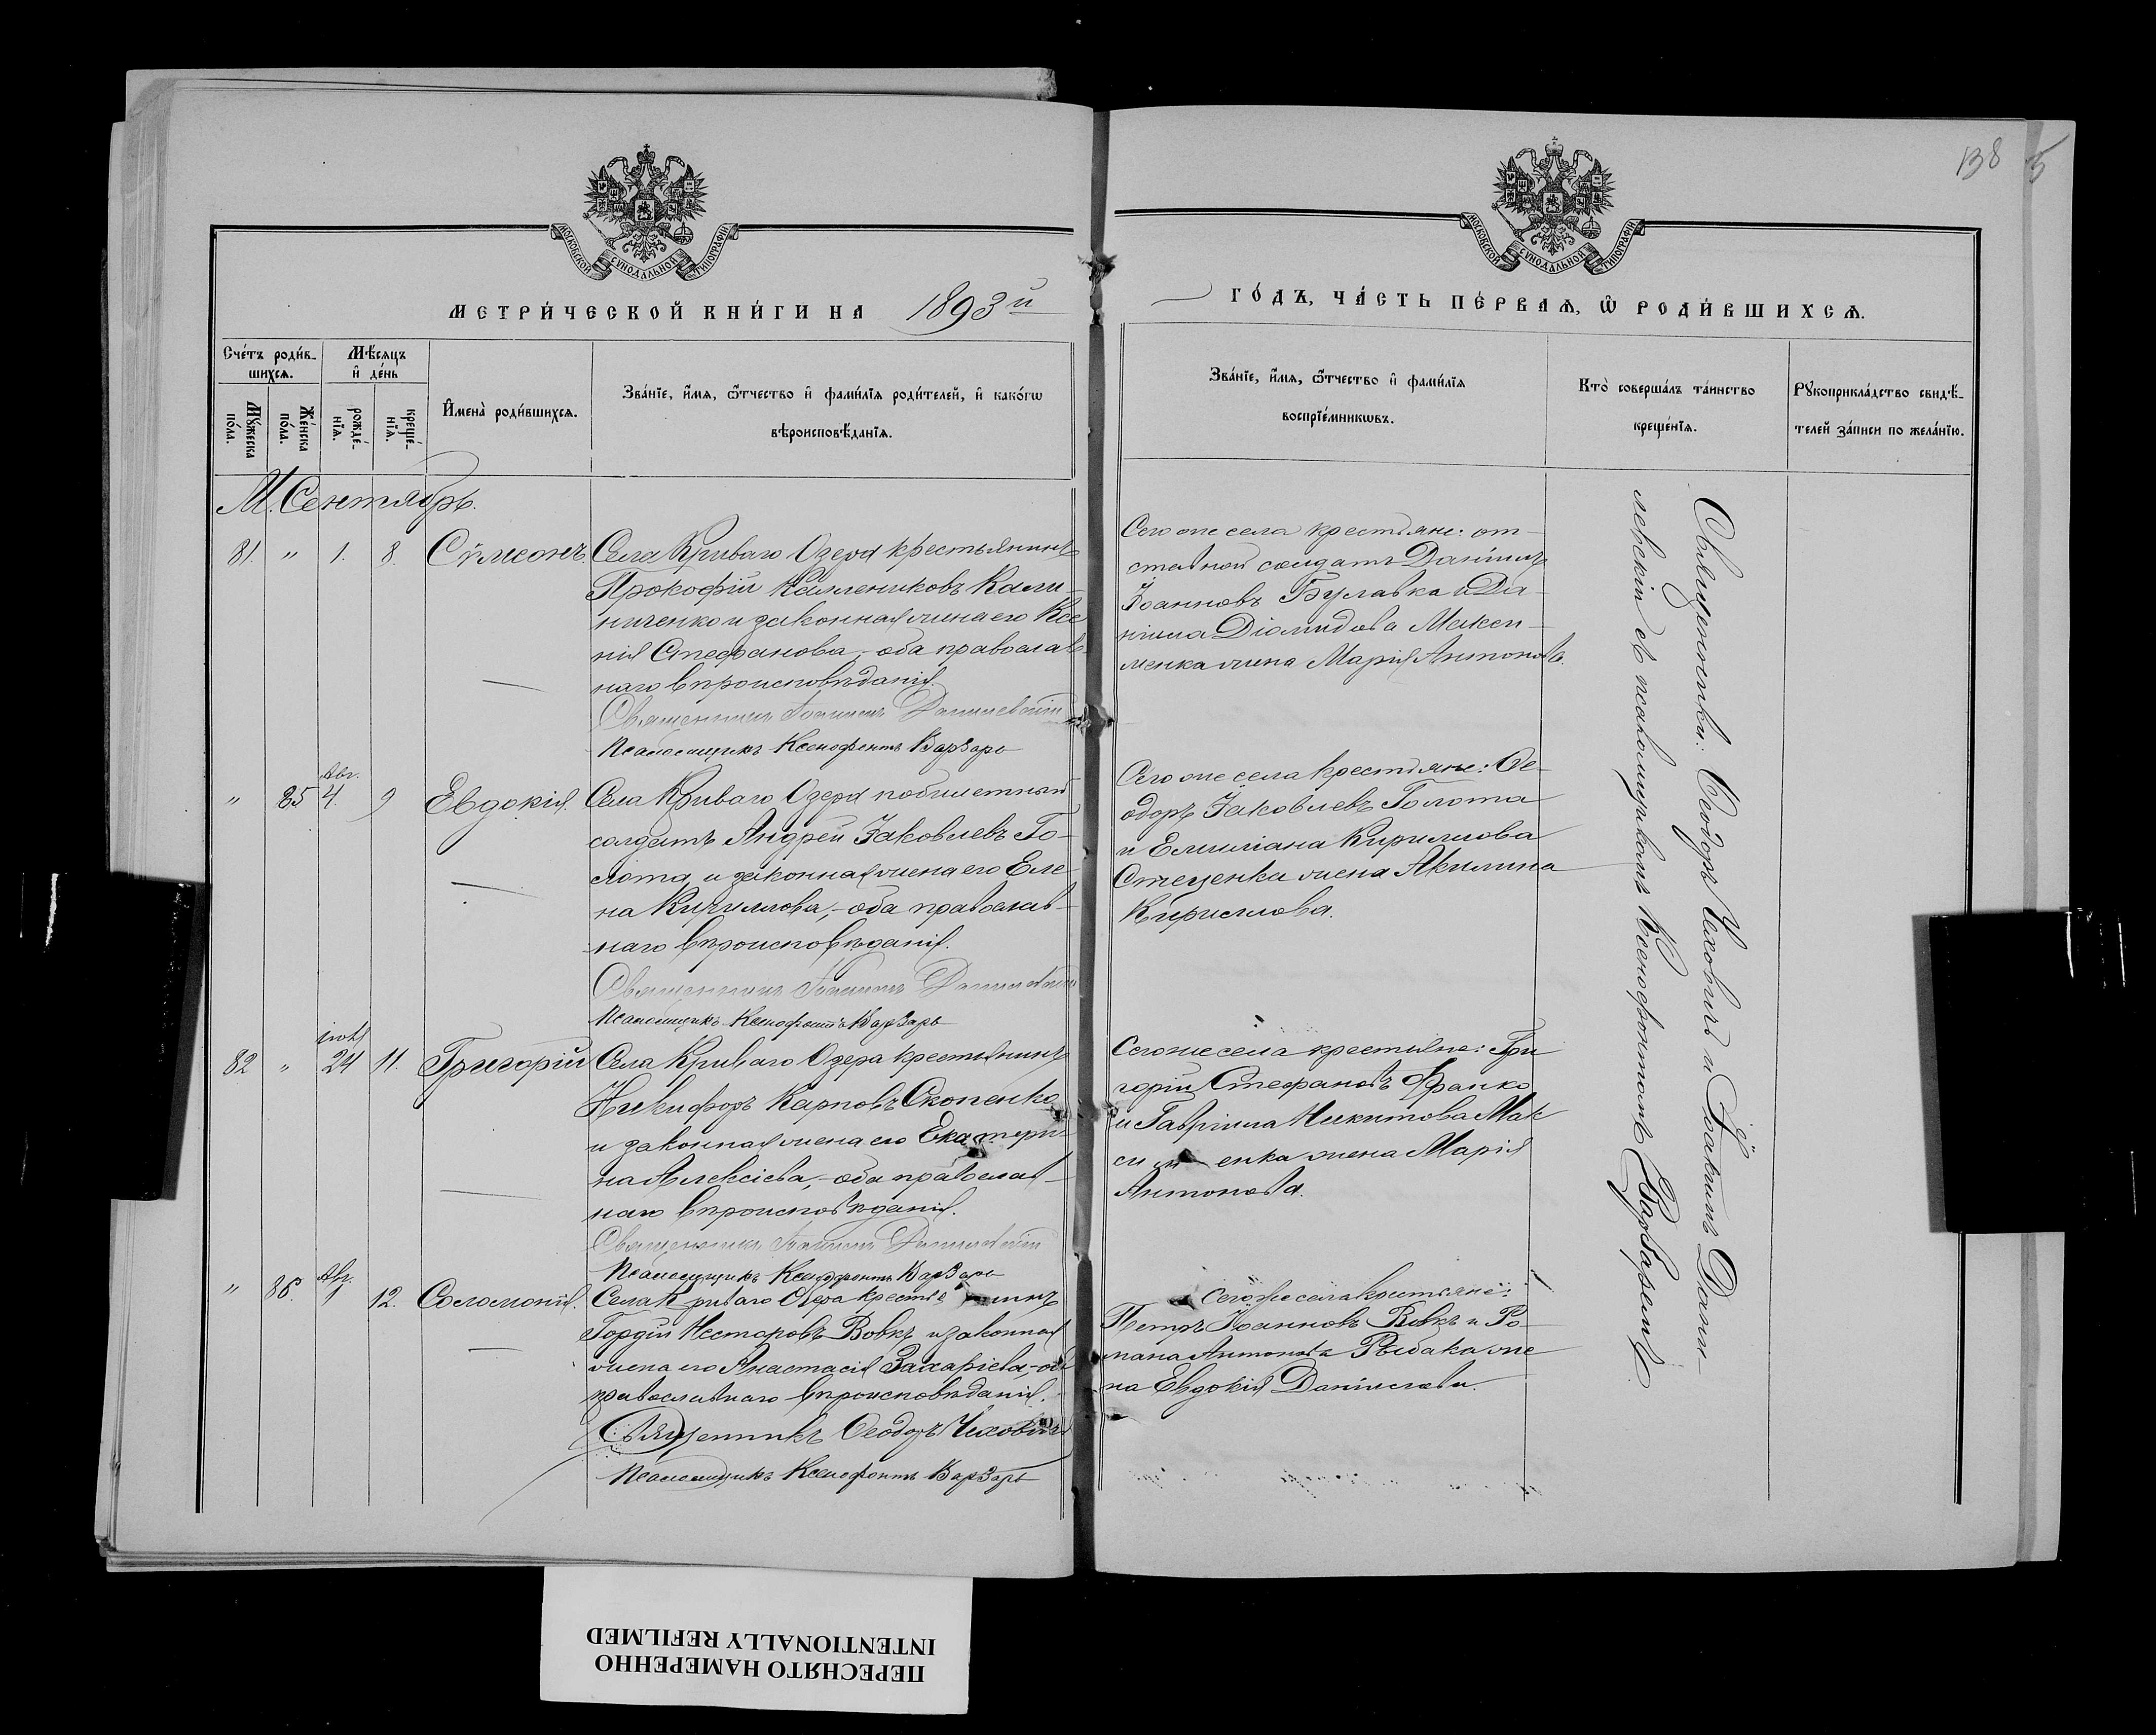 138
5
МОСКОВСКОЙ СѴНОДАЛЬНОЙ ТИПОГРАФІИ
МОСКОВСКОЙ СѴНОДАЛЬНОЙ ТИПОГРАФІИ
МЕТРИ́ЧЕСКОЙ КНИ́ГИ НА 1893й
ГО́ДЪ, ЧА́СТЬ ПЕ́РВАѦ, Ѡ҆ РОДИ́ВШИХСѦ.
Сче́тъ роди́в-
шихсѧ.
Мѹ́жеска
по́ла.
Же́нска
по́ла.
Мѣ́сяцъ
и҆ де́нь
рожде́-
нїѧ.
креще́-
нїѧ.
И҆мена̀ роди́вшихсѧ.
Зва́нїе, и҆́мѧ, ѻ҆́тчество и҆ фами́лїѧ роди́телей, и҆ како́гѡ
вѣроисповѣ́данїѧ.
Зва́нїе, и҆́мѧ, ѻ҆́тчество и҆ фами́лїѧ
воспрїе́мникѡвъ.
Кто̀ соверша́лъ та́инство
креще́нїѧ.
Рѹкоприкла́дство свидѣ́-
телей за́писи по жела́нїю.
М. Сентябрь.
81. " 1. 8. Сѵмеонъ.
Села Криваго Озера крестьянинъ
Прокофій Каллениковъ Кали-
ниченко и законная жена его Ксе
нія Стефанова,- оба православ-
наго вѣроисповѣданія.
Священникъ Іоакимъ Данилевскій
Псаломщикъ Ксенофонтъ Варзарь
Сего же села крестьяне: от-
ставной солдатъ Даніилъ
Іоанновъ Булавка и Да-
ніила Діомидова Максн-
менка жена Марія Антонова.
" 85 Авг. 4. 9 Евдокія.
Села Криваго Озера побилетный
солдатъ Андрей Іаковлевъ Го-
лота и законная жена его Еле
на Кириллова,- оба православ-
наго вѣроисповѣданія.
Священникъ Іоакимъ Данилевскій
Псаломщикъ Ксенофонтъ Варзарь
Сего же села крестьяне: Ѳе-
одоръ Іаковлевъ Голота
и Емиліана Кириллова
Стеценка жена Акилина
Кириллова.
82 " 24 11. Григорій
Села Криваго Озера крестьянинъ
Никифоръ Карповъ Скопенко
и законная жена его Екатери-
на Алексіева,- оба православ-
наго вѣроисповѣданія.
Священникъ Іоакимъ Данилевскій
Псаломщикъ Ксенофонтъ Варзарь
Сего же села крестьяне: Гри
горій Стефановъ Франко
и Гавріила Никитова Мак
сименка жена Марія
Антонова.
" 86. Авг. 1 12. Соломонія.
Села Криваго Озера крестьянинъ
Гордій Несторовъ Вовкъ и законная
жена его Анастасія Захаріева,- оба
православнаго вѣроисповѣданія.
Священникъ Ѳеодоръ Чеховичъ
Псаломщикъ Ксенофонтъ Варзарь
Сего же села крестьяне:
Петръ Іоанновъ Вовкъ и Ро-
мана Антонова Рыбака же
на Евдокія Даніилова.
Священники: Ѳеодоръ Чеховичъ и Іоакимъ Дани-
левскій съ псаломщикомъ Ксенофонтомъ Варзаремъ.
ПЕРЕСНЯТО НАМЕРЕННО
INTENTIONALLY REFILMED